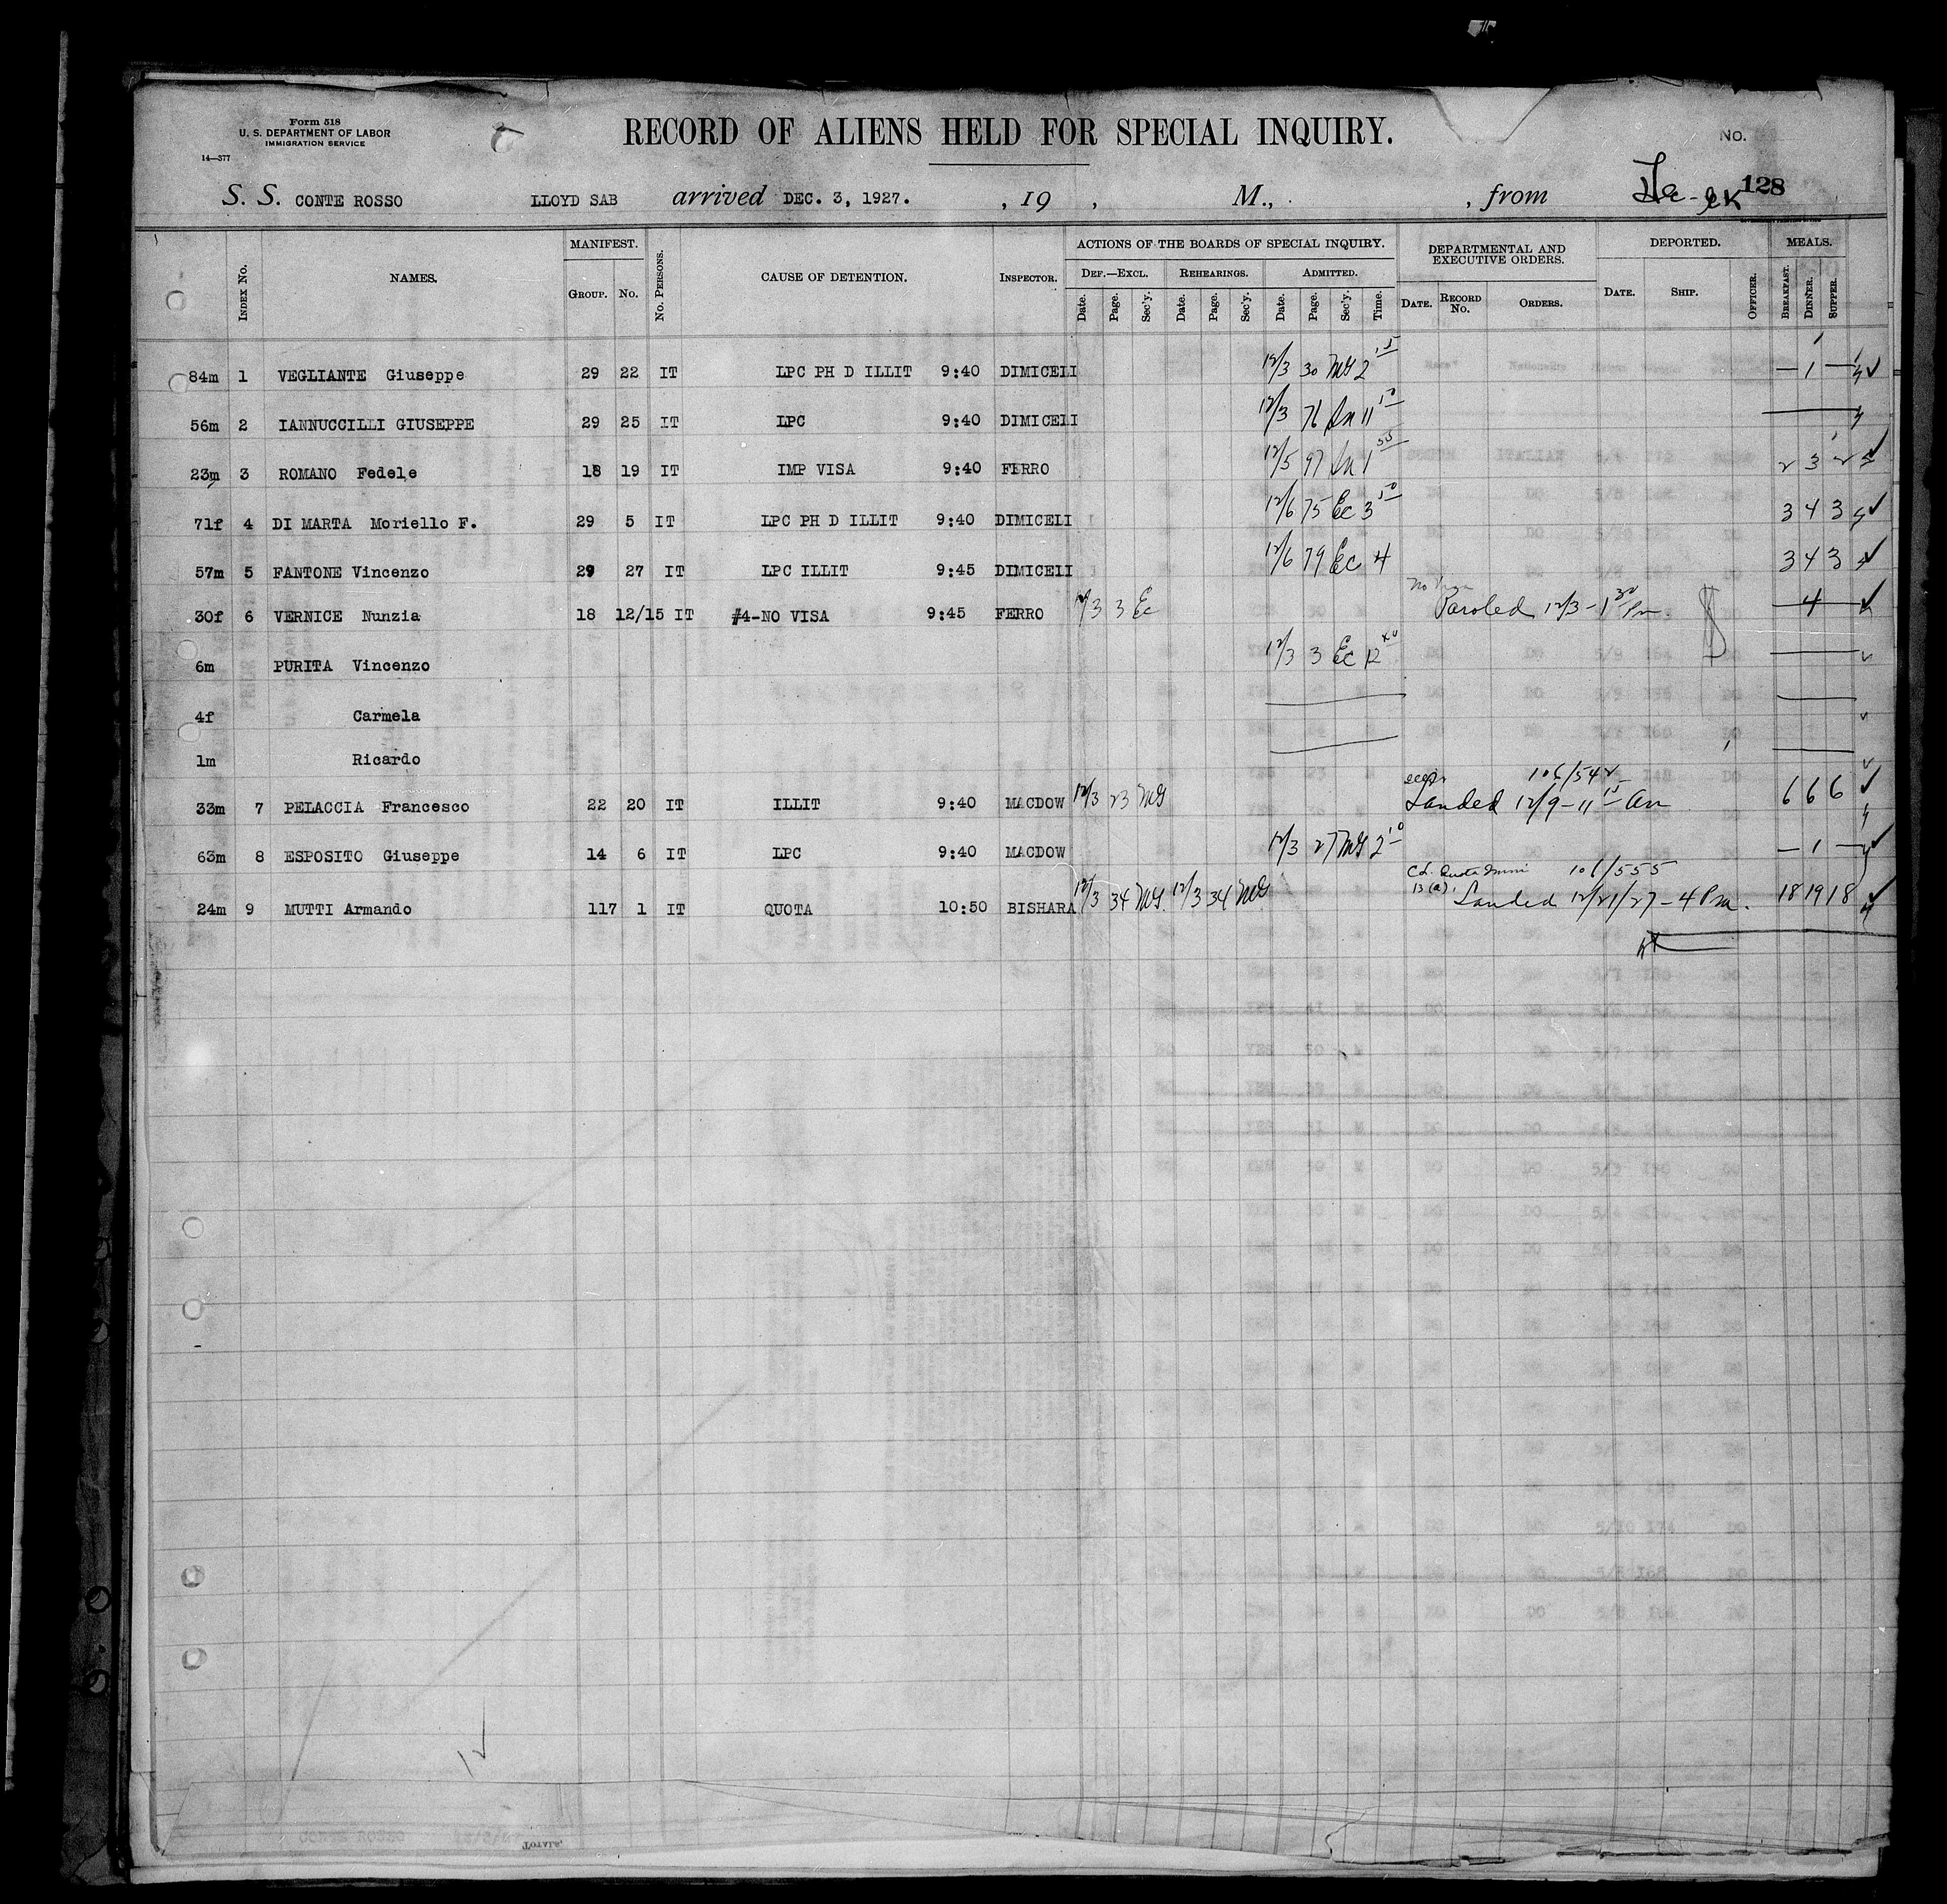 Form 518
U. S. DEPARTMENT OF LABOR
IMMIGRATION SERVICE
14—377
RECORD OF ALIENS HELD FOR SPECIAL INQUIRY.
No.
128
S. S. CONTE ROSSO LLOYD SAB arrived DEC. 3, 1927. , 19 , M., , from
Index No. NAMES. MANIFEST. Group. No. No. Persons. CAUSE OF DETENTION. Inspector. ACTIONS OF THE BOARDS OF SPECIAL INQUIRY. Def.—Excl. Date. Page. Sec'y. Rehearings. Date. Page. Sec'y. Admitted. Date. Page. Sec'y. Time. DEPARTMENTAL AND EXECUTIVE ORDERS. Date. Record No. Orders. DEPORTED. Date. Ship. Officer. MEALS. Breakfast. Dinner. Supper.
84m 1 VEGLIANTE Giuseppe 29 22 IT LPC PH D ILLIT 9:40 DIMICELI 12/3 30 MG 2 15 — 1 —
56m 2 IANNUCCILLI GIUSEPPE 29 25 IT LPC 9:40 DIMICELI 12/3 76 11 10
23m 3 ROMANO Fedele 18 19 IT IMP VISA 9:40 FERRO 12/5 97 1 55 2 3 2
71f 4 DI MARTA Moriello F. 29 5 IT LPC PH D ILLIT 9:40 DIMICELI 12/6 75 Ec 3 10 3 4 3
57m 5 FANTONE Vincenzo 29 27 IT LPC ILLIT 9:45 DIMICELI 12/6 79 Ec 4 3 4 3
30f 6 VERNICE Nunzia 18 12/15 IT #4-NO VISA 9:45 FERRO 12/3 3 Ec Paroled 12/3 - 1 30 Pm. — 4 —
6m PURITA Vincenzo 12/3 3 Ec 12
4f Carmela
1m Ricardo
33m 7 PELACCIA Francesco 22 20 IT ILLIT 9:40 MACDOW 12/3 23 MG 106/542 Landed 12/9 - 11 15 Am 6 6 6
63m 8 ESPOSITO Giuseppe 14 6 IT LPC 9:40 MACDOW 12/3 27 MG 2 10 — 1 —
24m 9 MUTTI Armando 117 1 IT QUOTA 10:50 BISHARA 12/3 34 MG 12/3 34 MG 13(a). 106/555 Landed 12/21/27 - 4 Pm. 18 19 18
Totals.